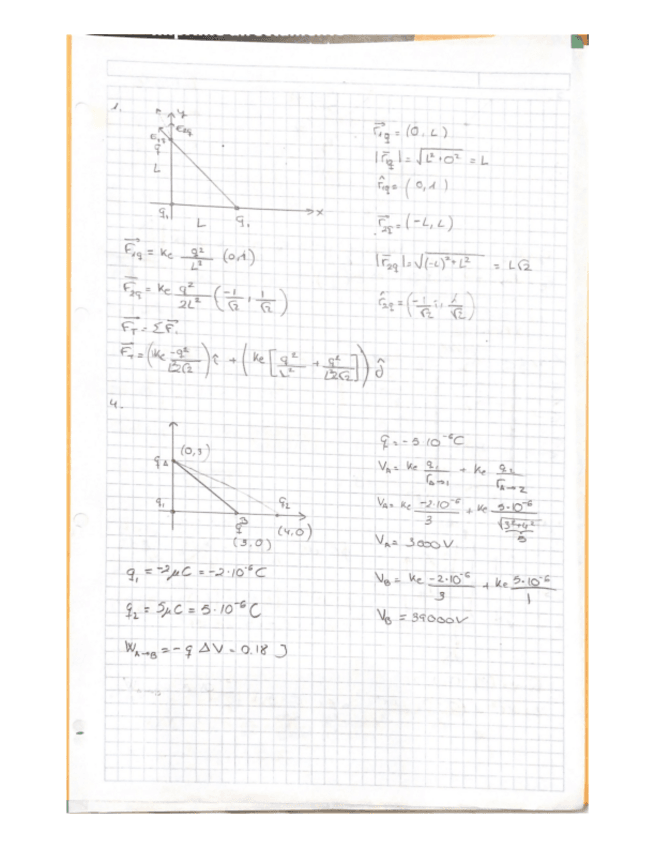 1.
y
E₂q
q
L
q₁
L
q₁
x
r⃗₁q = (0, L)
|r⃗₁q| = √(L² + 0²) = L
r̂₁q = (0, 1)
r⃗₂q = (-L, L)
|r⃗₂q| = √((-L)² + L²) = L√2
r̂₂q = (-1/√2, 1/√2)
F⃗₁q = Kc q²/L² (0,1)
F⃗₂q = Kc q²/2L² (-1/√2, 1/√2)
F⃗T = ΣF⃗i
F⃗T = (Kc -q²/L²2√2) î + (Kc [q²/L² + q²/L²2√2]) ĵ
4.
(0,3)
q A
q₁
B
q₂
(3,0)
(4,0)
q₁ = -2μC = -2·10⁻⁶C
q₂ = 5μC = 5·10⁻⁶C
W A→B = -q ΔV = 0.18 J
q = -5·10⁻⁶C
VA = Kc q₁/rA→1 + Kc q₂/rA→2
VA = Kc -2·10⁻⁶/3 + Kc 5·10⁻⁶/√(3²+4²)
5
VA = 3000V
VB = Kc -2·10⁻⁶/3 + Kc 5·10⁻⁶/1
VB = 39000V